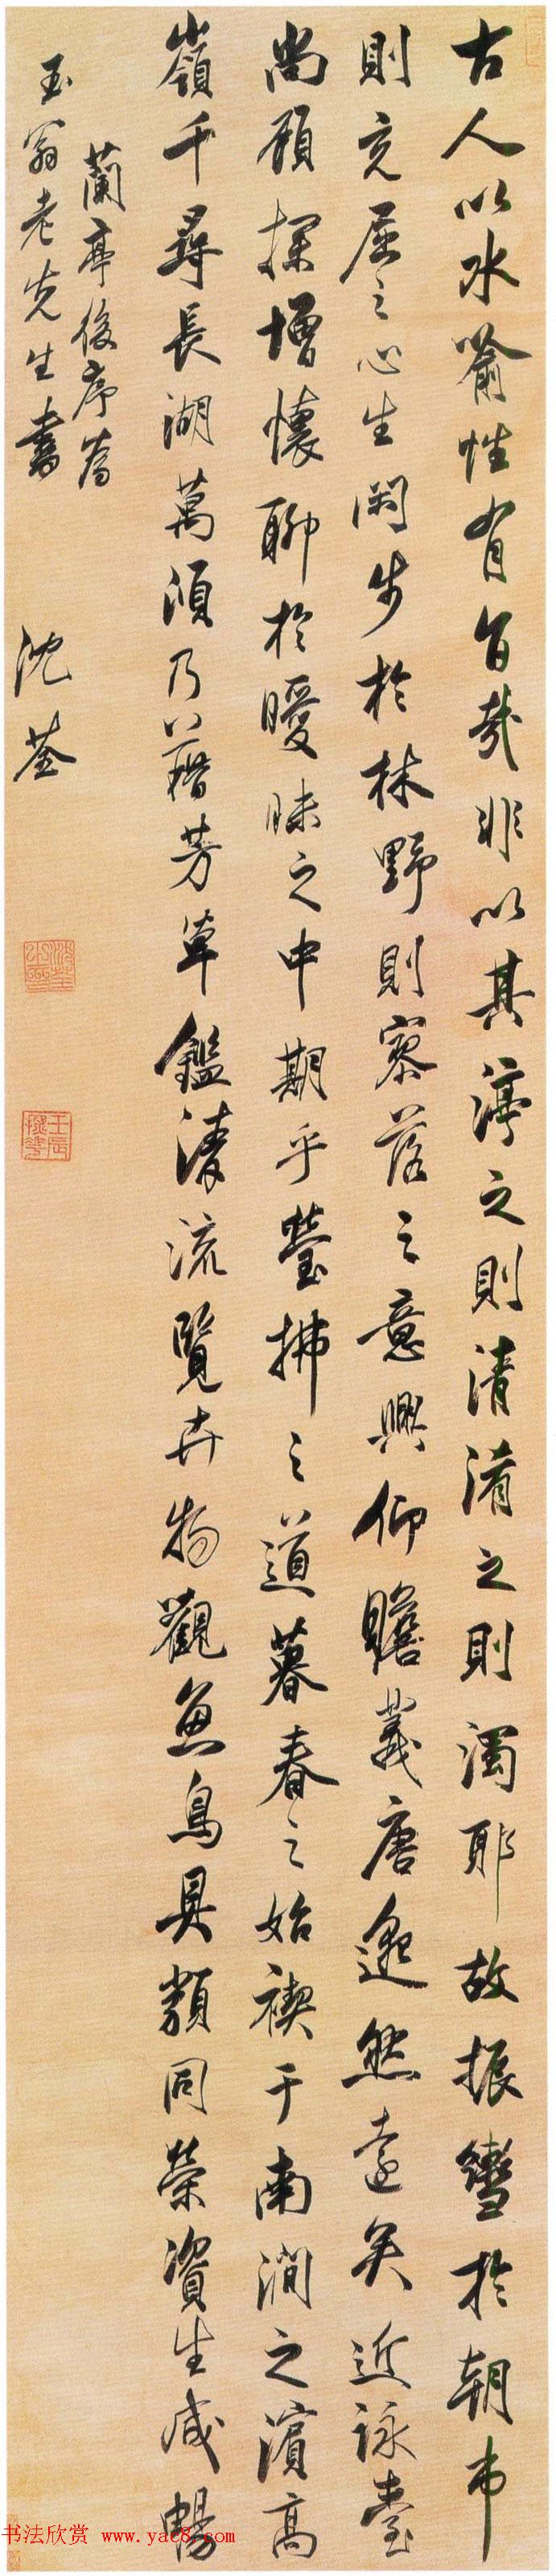 古人以水喻性有旨哉非以其渟之則清淆之則濁耶故振轡於朝市
則充屈之心生闲步於林野則寥落之意興仰瞻羲唐邈然遠矣近詠臺
尚顧探增懷聊於曖昧之中期乎瑩拂之道暮春之始禊于南澗之濱高
嶺千尋長湖萬頃乃藉芳草鑑清流覽卉物觀魚鳥具類同榮資生咸暢
蘭亭後序為
玉翁老先生書
沈荃
壬辰
书法欣赏 www.yac8.com